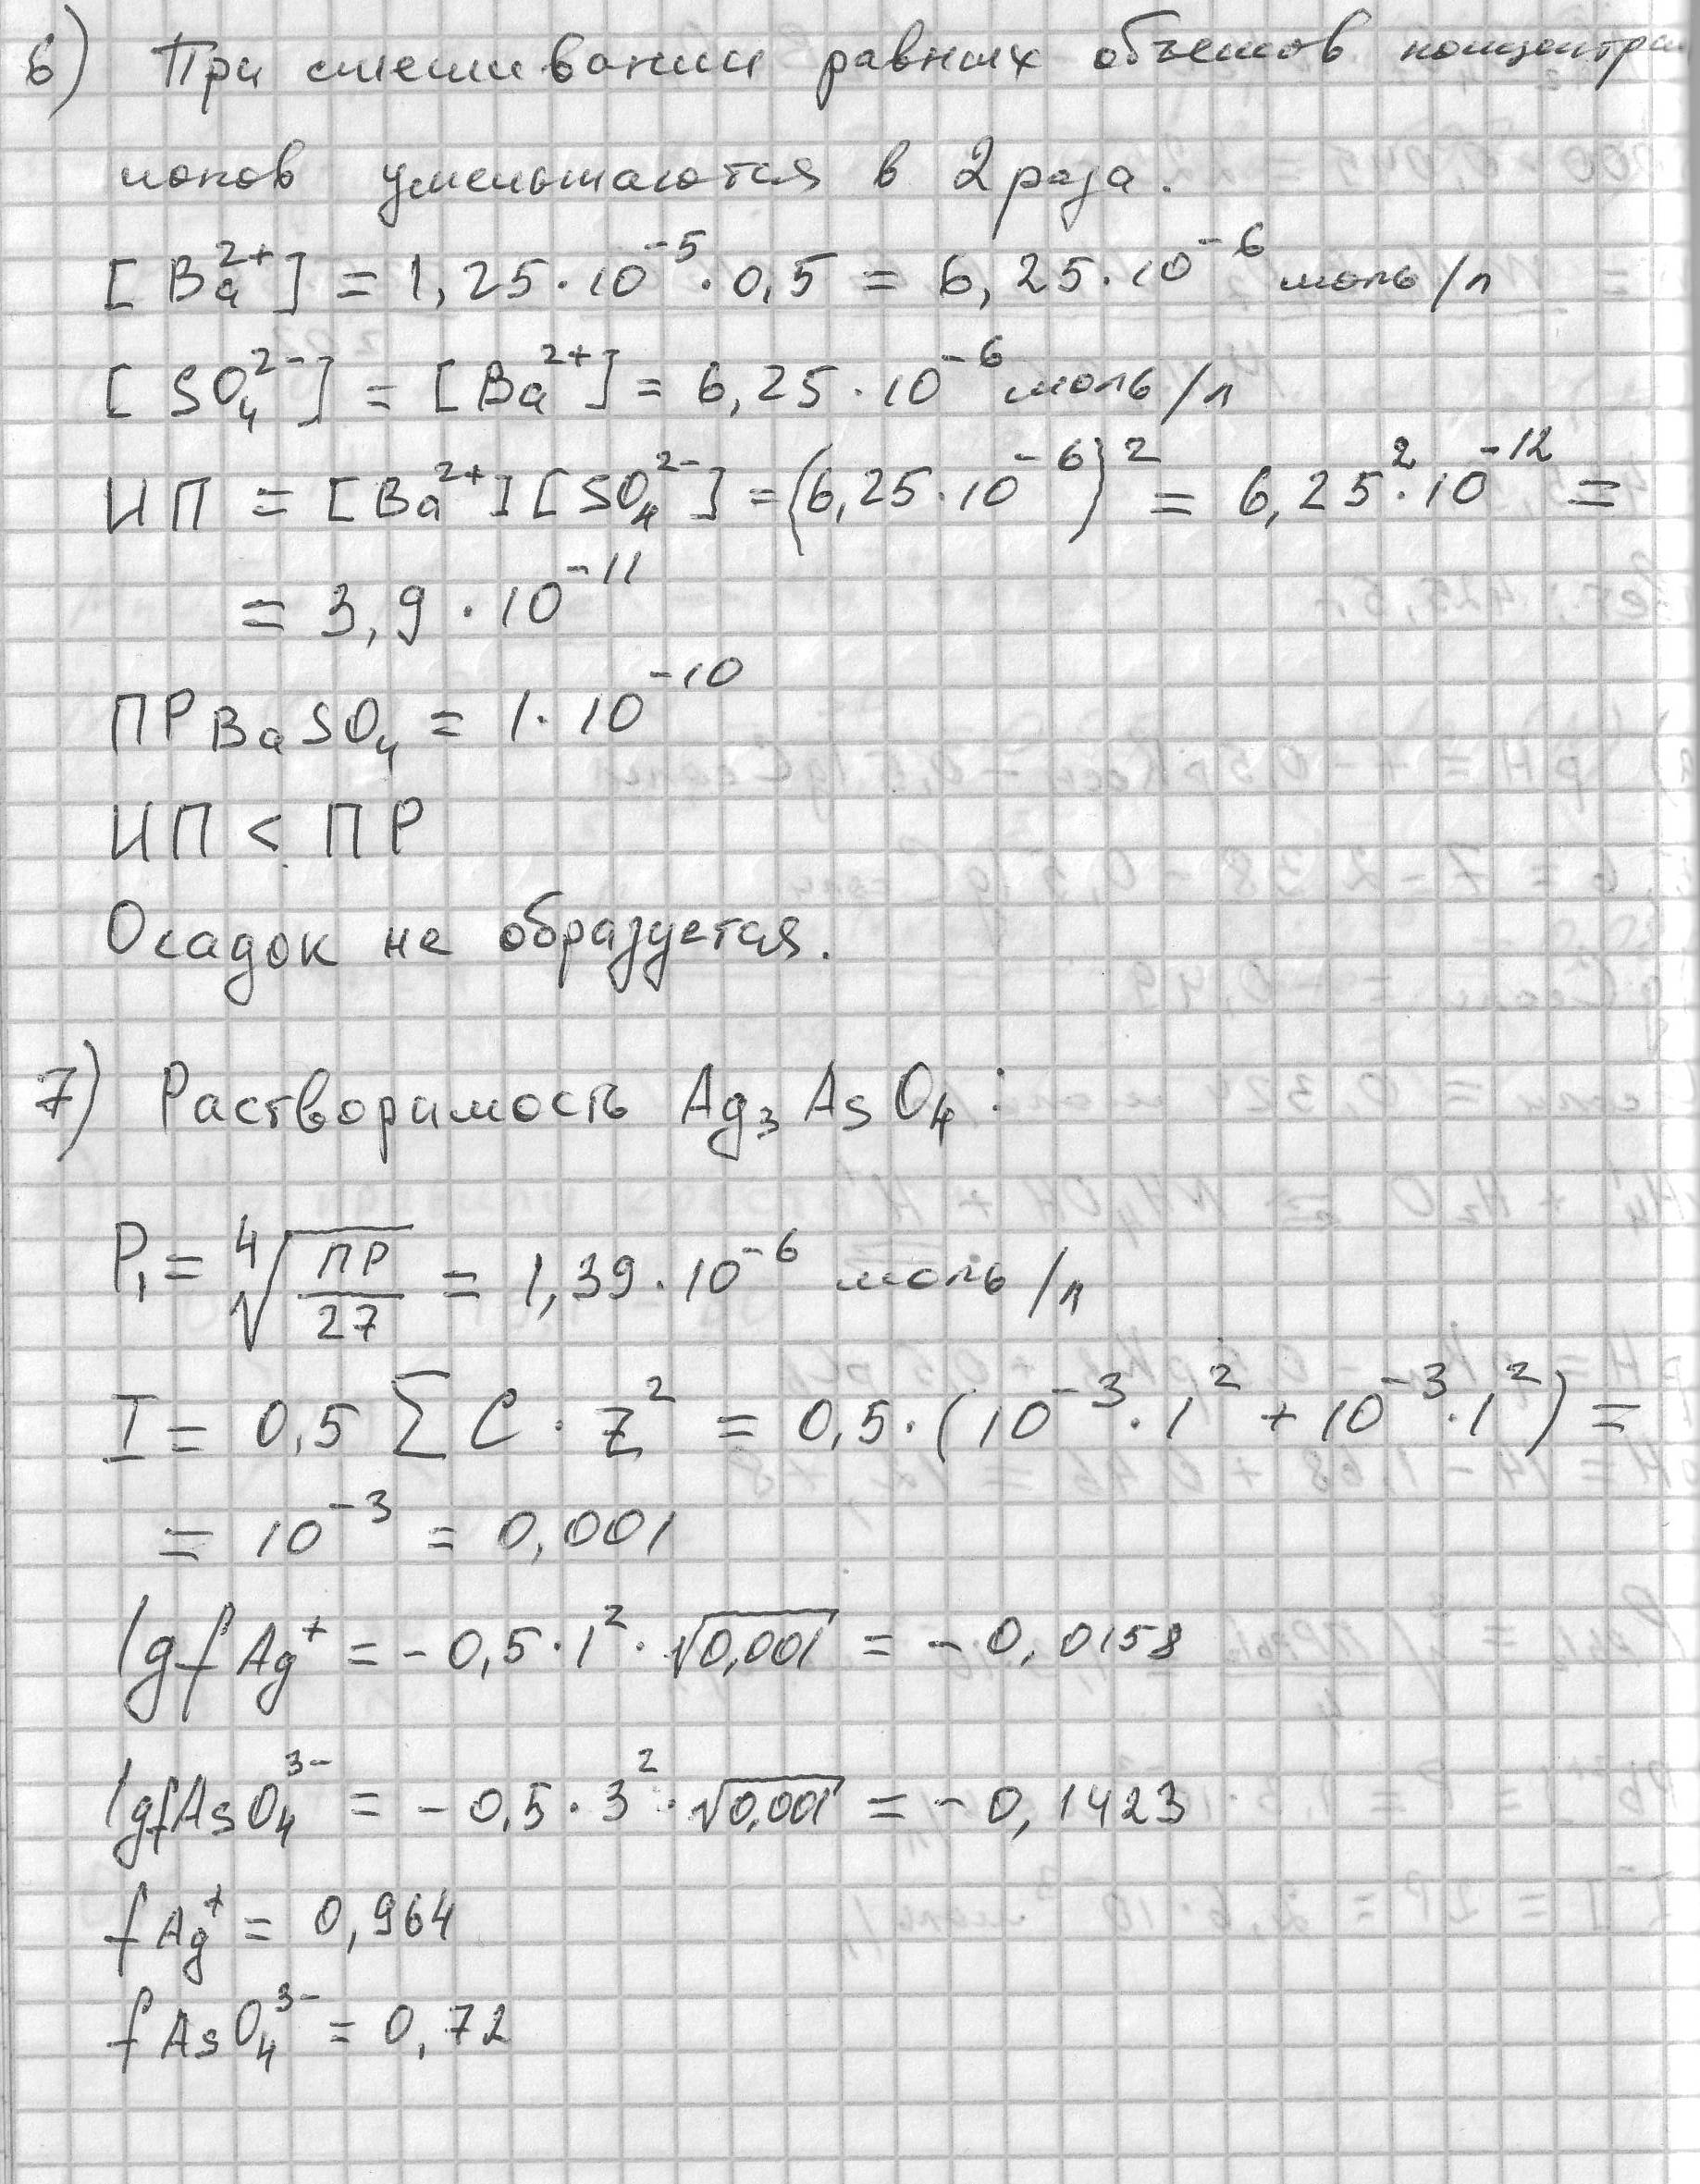 6) При смешивании равных объемов концентра
ионов уменьшаются в 2 раза.
[Ba²⁺] = 1,25·10⁻⁵·0,5 = 6,25·10⁻⁶ моль/л
[SO₄²⁻] = [Ba²⁺] = 6,25·10⁻⁶ моль/л
ИП = [Ba²⁺][SO₄²⁻] = (6,25·10⁻⁶)² = 6,25²·10⁻¹² =
= 3,9·10⁻¹¹
ПР BaSO₄ = 1·10⁻¹⁰
ИП < ПР
Осадок не образуется.
7) Растворимость Ag₃AsO₄:
P₁ = ⁴√(ПР/27) = 1,39·10⁻⁶ моль/л
I = 0,5 ∑ C·z² = 0,5·(10⁻³·1² + 10⁻³·1²) =
= 10⁻³ = 0,001
lgf Ag⁺ = -0,5·1²·√0,001 = -0,0158
lgf AsO₄³⁻ = -0,5·3²·√0,001 = -0,1423
f Ag⁺ = 0,964
f AsO₄³⁻ = 0,72